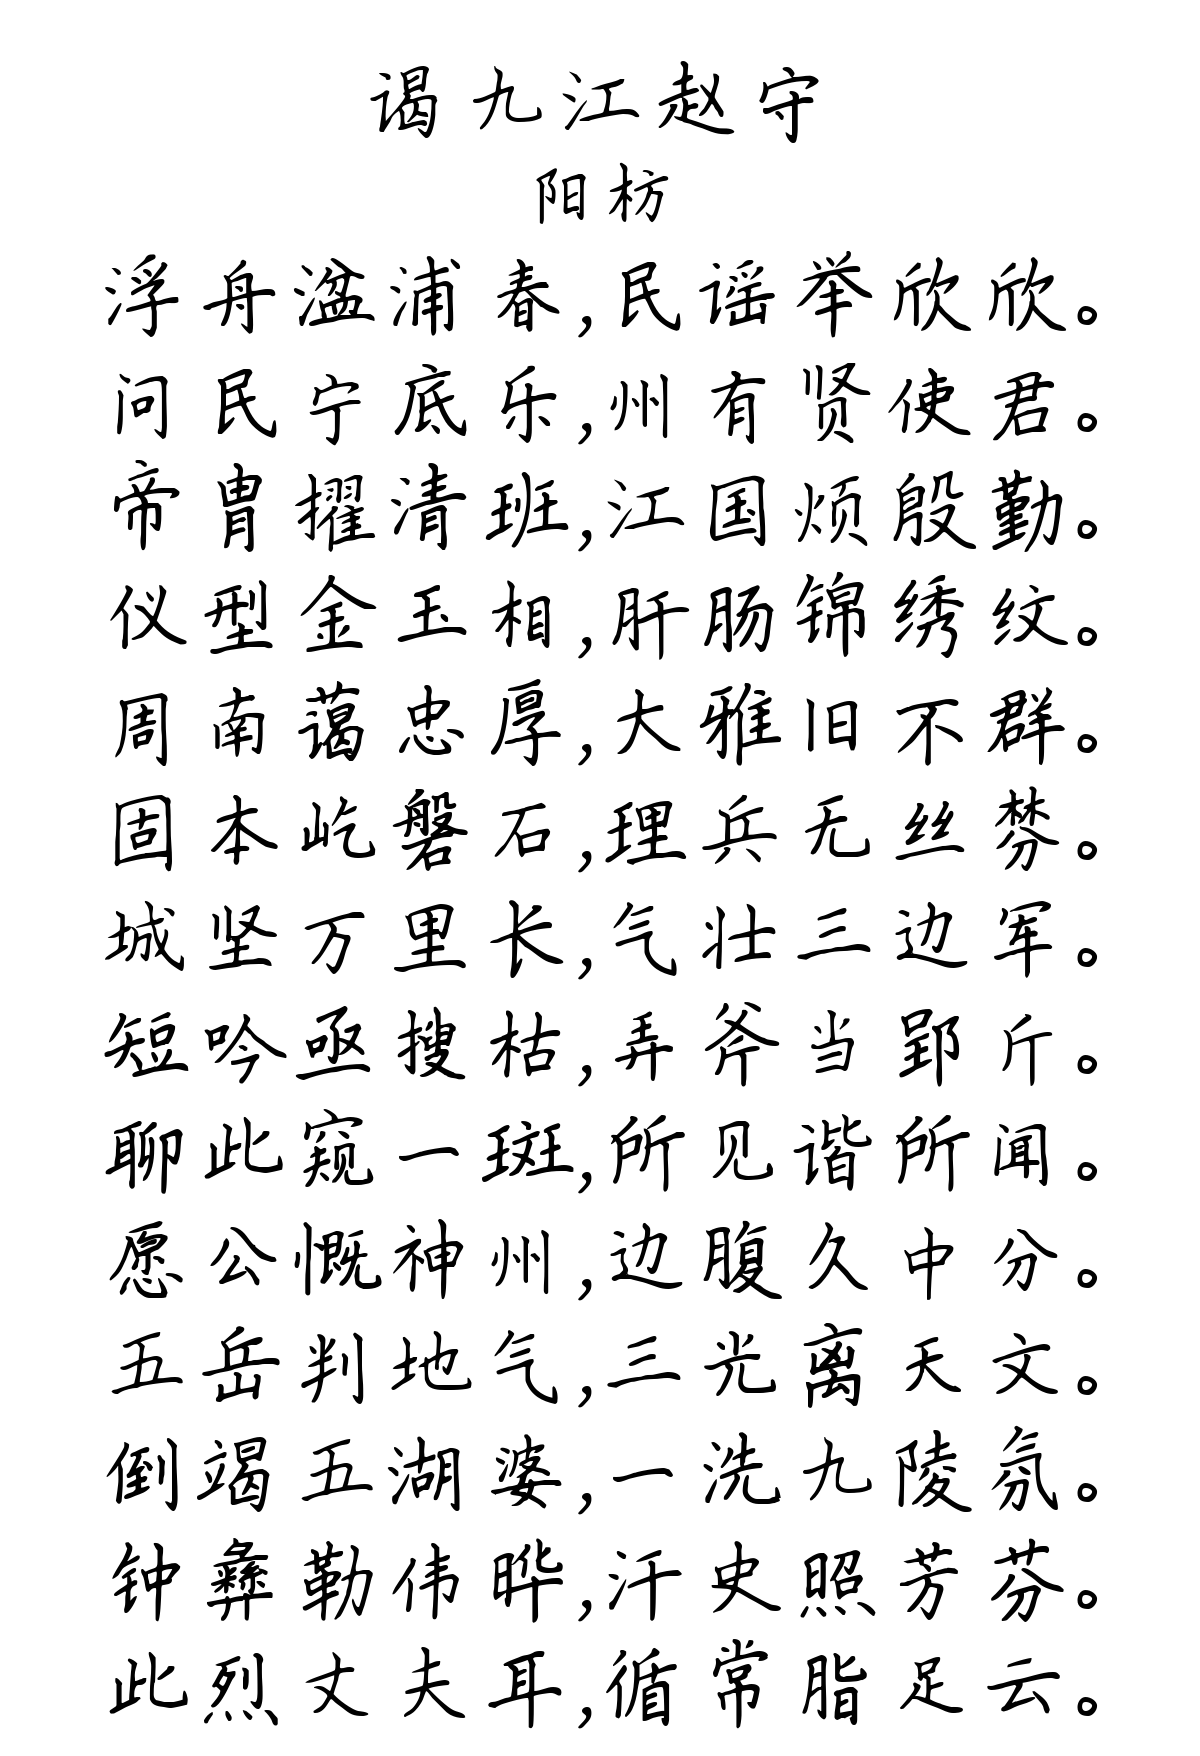 谒九江赵守
阳枋
浮舟湓浦春,民谣举欣欣。
问民宁底乐,州有贤使君。
帝胄擢清班,江国烦殷勤。
仪型金玉相,肝肠锦绣纹。
周南蔼忠厚,大雅旧不群。
固本屹磐石,理兵无丝棼。
城坚万里长,气壮三边军。
短吟亟搜枯,弄斧当郢斤。
聊此窥一斑,所见谐所闻。
愿公慨神州,边腹久中分。
五岳判地气,三光离天文。
倒竭五湖婆,一洗九陵氛。
钟彝勒伟晔,汗史照芳芬。
此烈丈夫耳,循常脂足云。